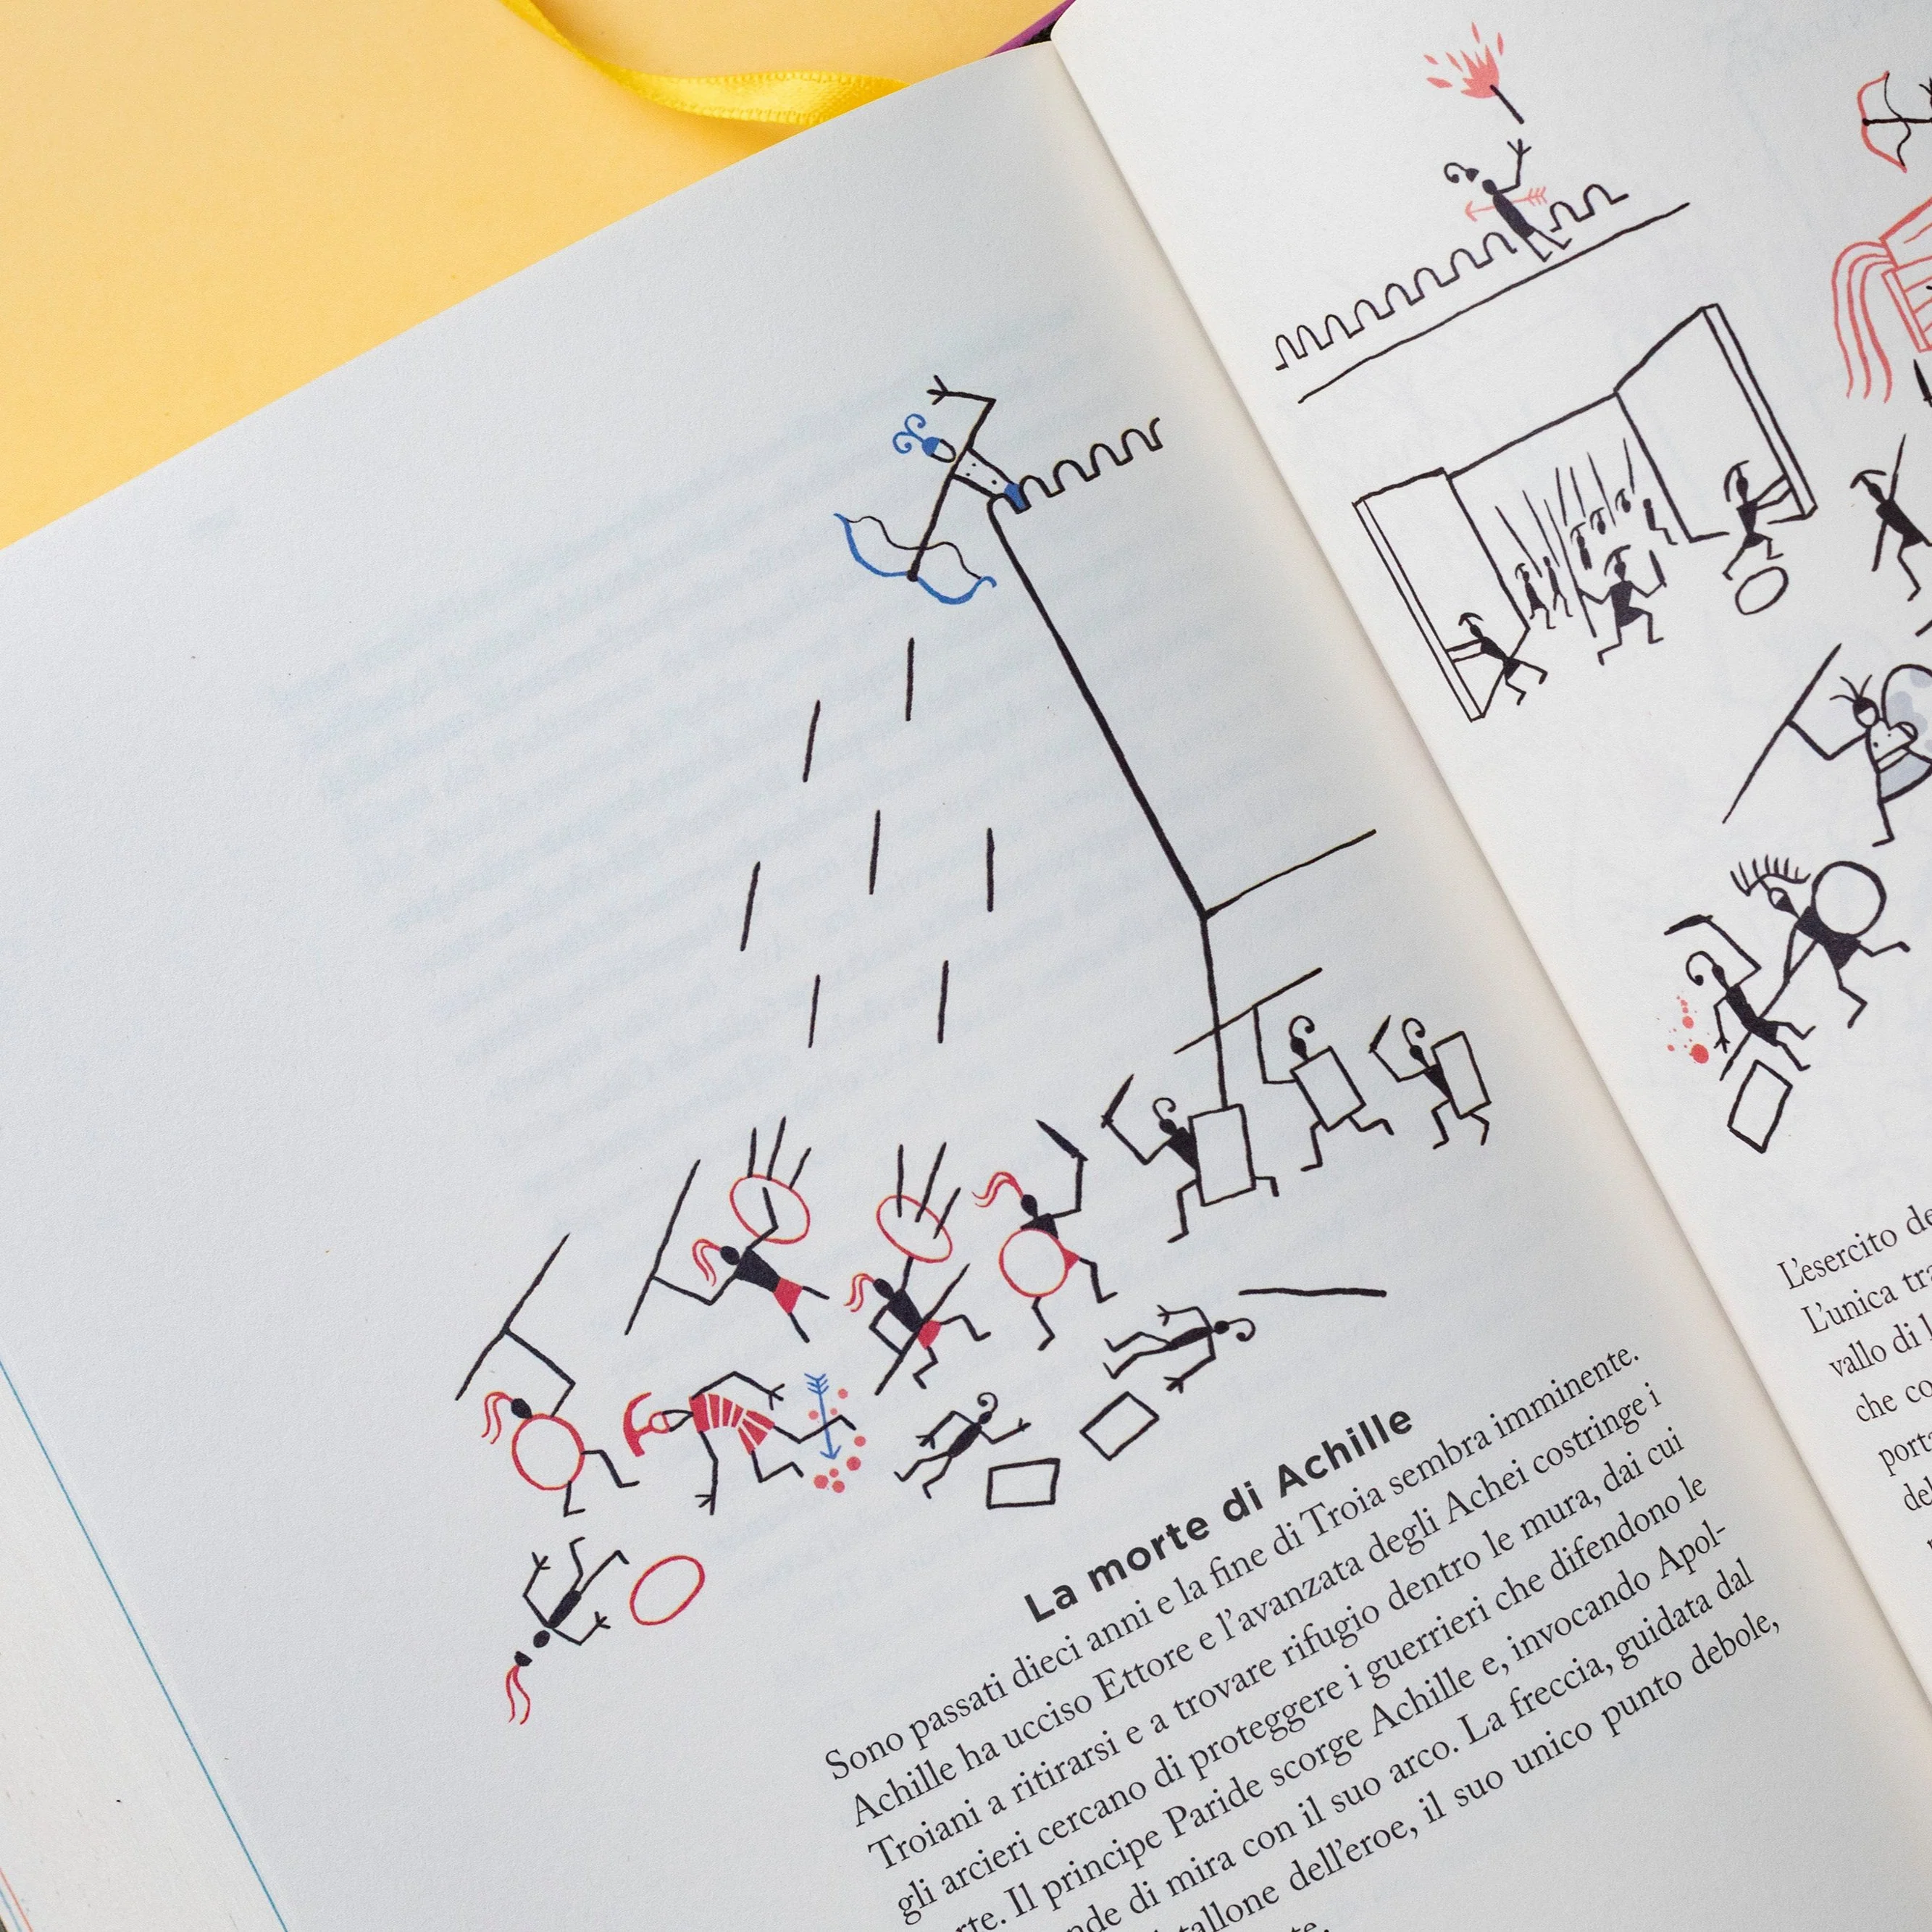 La morte di Achille
Sono passati dieci anni e la fine di Troia sembra imminente.
Achille ha ucciso Ettore e l'avanzata degli Achei costringe i
Troiani a ritirarsi e a trovare rifugio dentro le mura, dai cui
gli arcieri cercano di proteggere i guerrieri che difendono le
Il principe Paride scorge Achille e, invocando Apol-
di mira con il suo arco. La freccia, guidata dal
tallone dell'eroe, il suo unico punto debole,
L'esercito
L'unica
vallo di
che